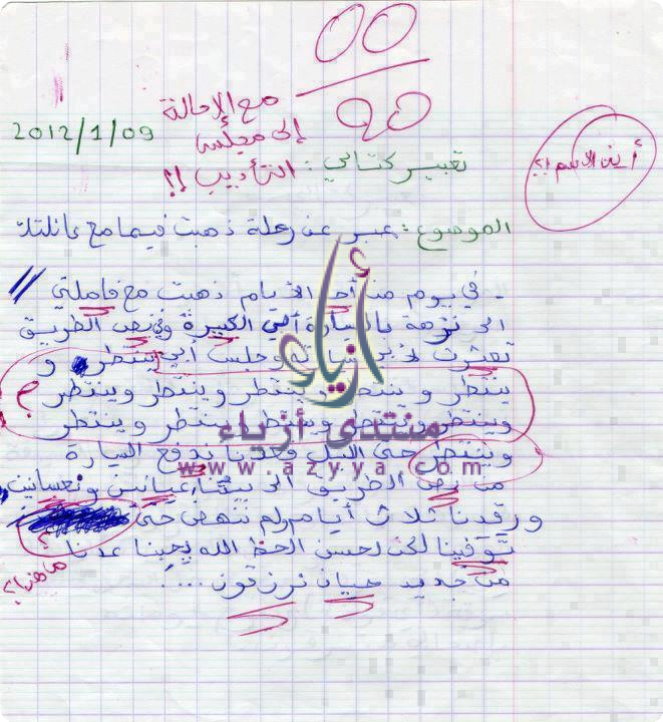 00
20
مع الإحالة
إلى مجلس
التأديب !!
2012/1/09
تعبير كتابي :
أين الاسم !؟
الموضوع : عبر عن رحلة ذهبت فيها مع عائلتك
- في يوم من أحد الايام ذهبت مع فاملتي
الى نزهة بالسيارة أبي الكبيرة وفي نص الطريق
وجلس أبي ينتظر و
ينتظر و ينتظر وينتظر وينتظر وينتظر وينتظر ؟
وينتظر وينتظر وينتظر وينتظر و ينتظر
وينتظر حتى الليل بدفع السيارة
من نص الطريق الى بيتنا عيانين ونعسانين
ورقدنا ثلاث أيام ولم ننهض حتى
توفينا لكن لحسن الحظ الله يحبنا عدنا
من جديد حيان نرزقون ....
؟
ما هذا !؟
أزياء
منتدى أزياء
www.azyya.com